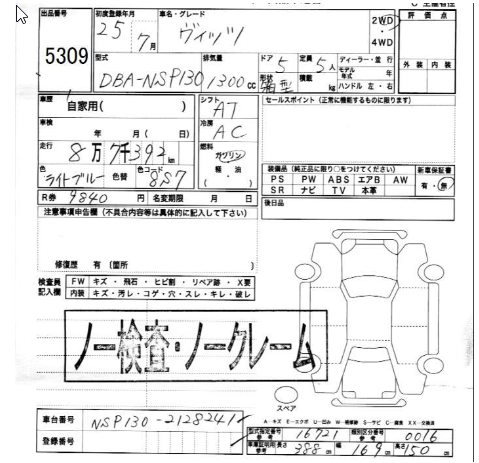 出品番号
5309
初度登録年月
25年 7月
車名・グレード
ヴィッツ
2WD
4WD
評価点
外装 内装
型式
DBA-NSP130
排気量
1300cc
ドア 5
形状 箱型
定員 5人
積載 kg
ディーラー・並行
モデル年式 年
ハンドル 左・右
車歴
自家用( )
シフト
AT
車検
年 月( 日)
冷房
AC
走行
8万7千392km
燃料
ガソリン
軽・油
( )
色
ライトブルー
色替
色コード
8S7
セールスポイント(正常に機能するものに限ります)
装備品(純正品に限り○をつけてください)
新車保証書
PS PW ABS エアB AW
SR ナビ TV 本革
有・無
R券 9840円
名変期限 月 日
後日品
注意事項申告欄(不具合内容等は具体的に記入して下さい)
修復歴 有(箇所 )
検査員記入欄
FW キズ・飛石・ヒビ割・リペア跡・X要
内装 キズ・汚レ・コゲ・穴・スレ・キレ・破レ
ノー検査・ノークレーム
スペア
車台番号
NSP130-2128241
登録番号
型式指定番号 参考 16721
類別区分番号 参考 0016
車庫証明用 参考 長さ 388cm 幅 169cm 高さ 150cm